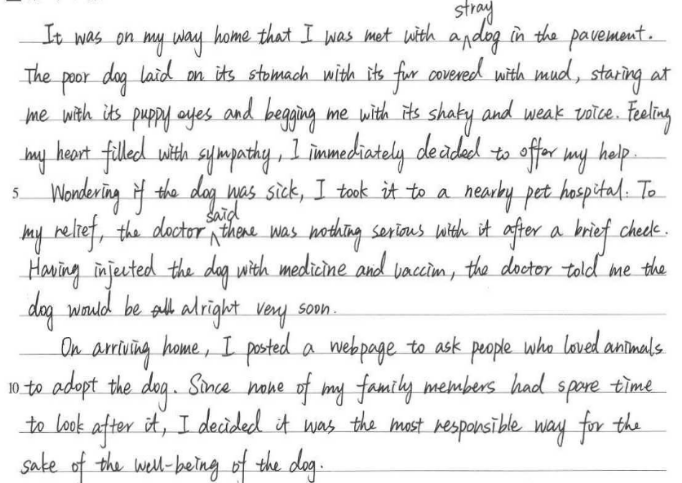 It was on my way home that I was met with a stray dog in the pavement.
The poor dog laid on its stomach with its fur covered with mud, staring at
me with its puppy eyes and begging me with its shaky and weak voice. Feeling
my heart filled with sympathy, I immediately decided to offer my help.
5 Wondering if the dog was sick, I took it to a nearby pet hospital. To
my relief, the doctor said there was nothing serious with it after a brief check.
Having injected the dog with medicine and vaccin, the doctor told me the
dog would be all alright very soon.
On arriving home, I posted a webpage to ask people who loved animals
10 to adopt the dog. Since none of my family members had spare time
to look after it, I decided it was the most responsible way for the
sake of the well-being of the dog.